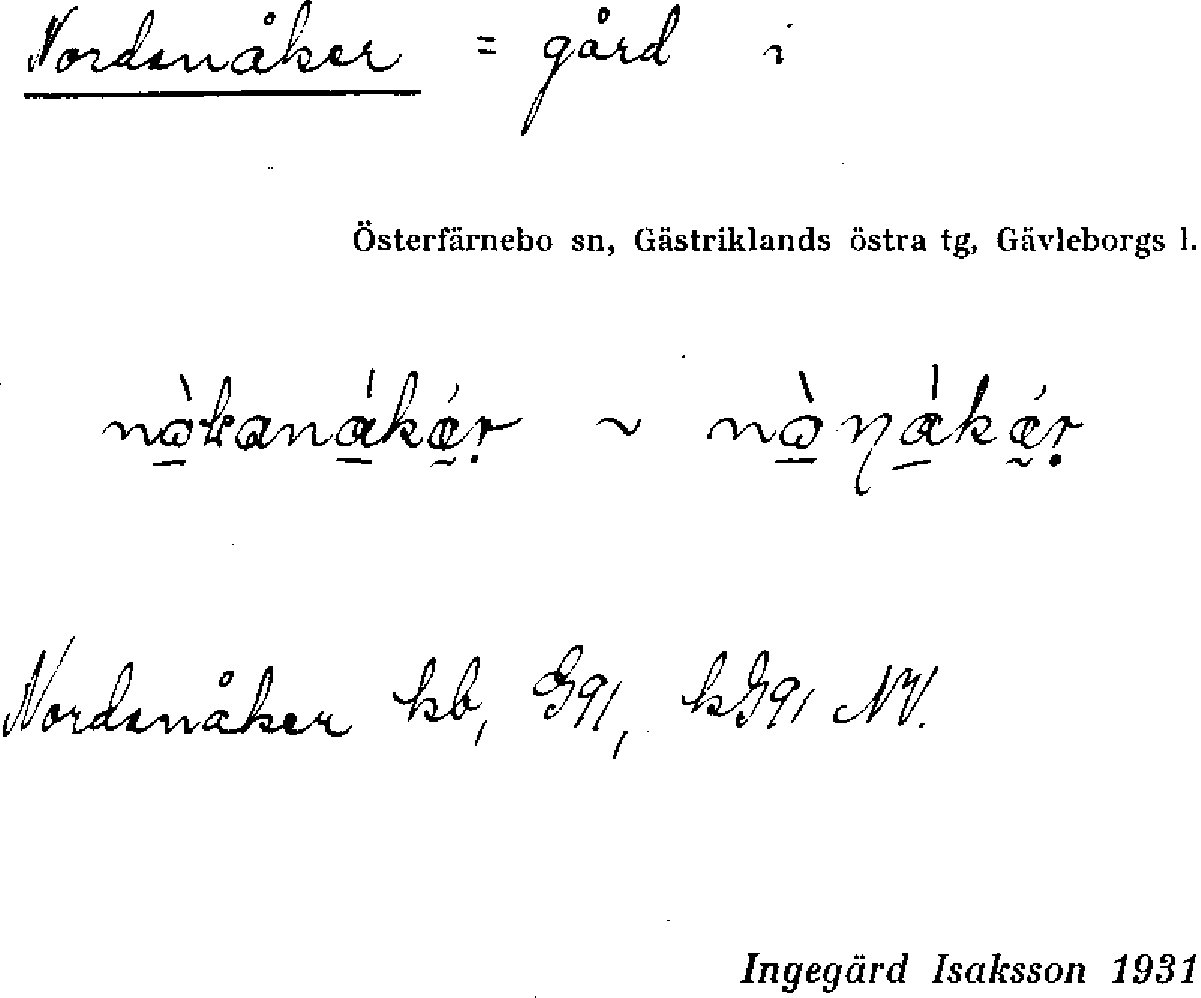 Nordsnåker = gård i
Österfärnebo sn, Gästriklands östra tg, Gävleborgs l.
~
Nordsnåker kb, G91, kG91 NV.
Ingegärd Isaksson 1931